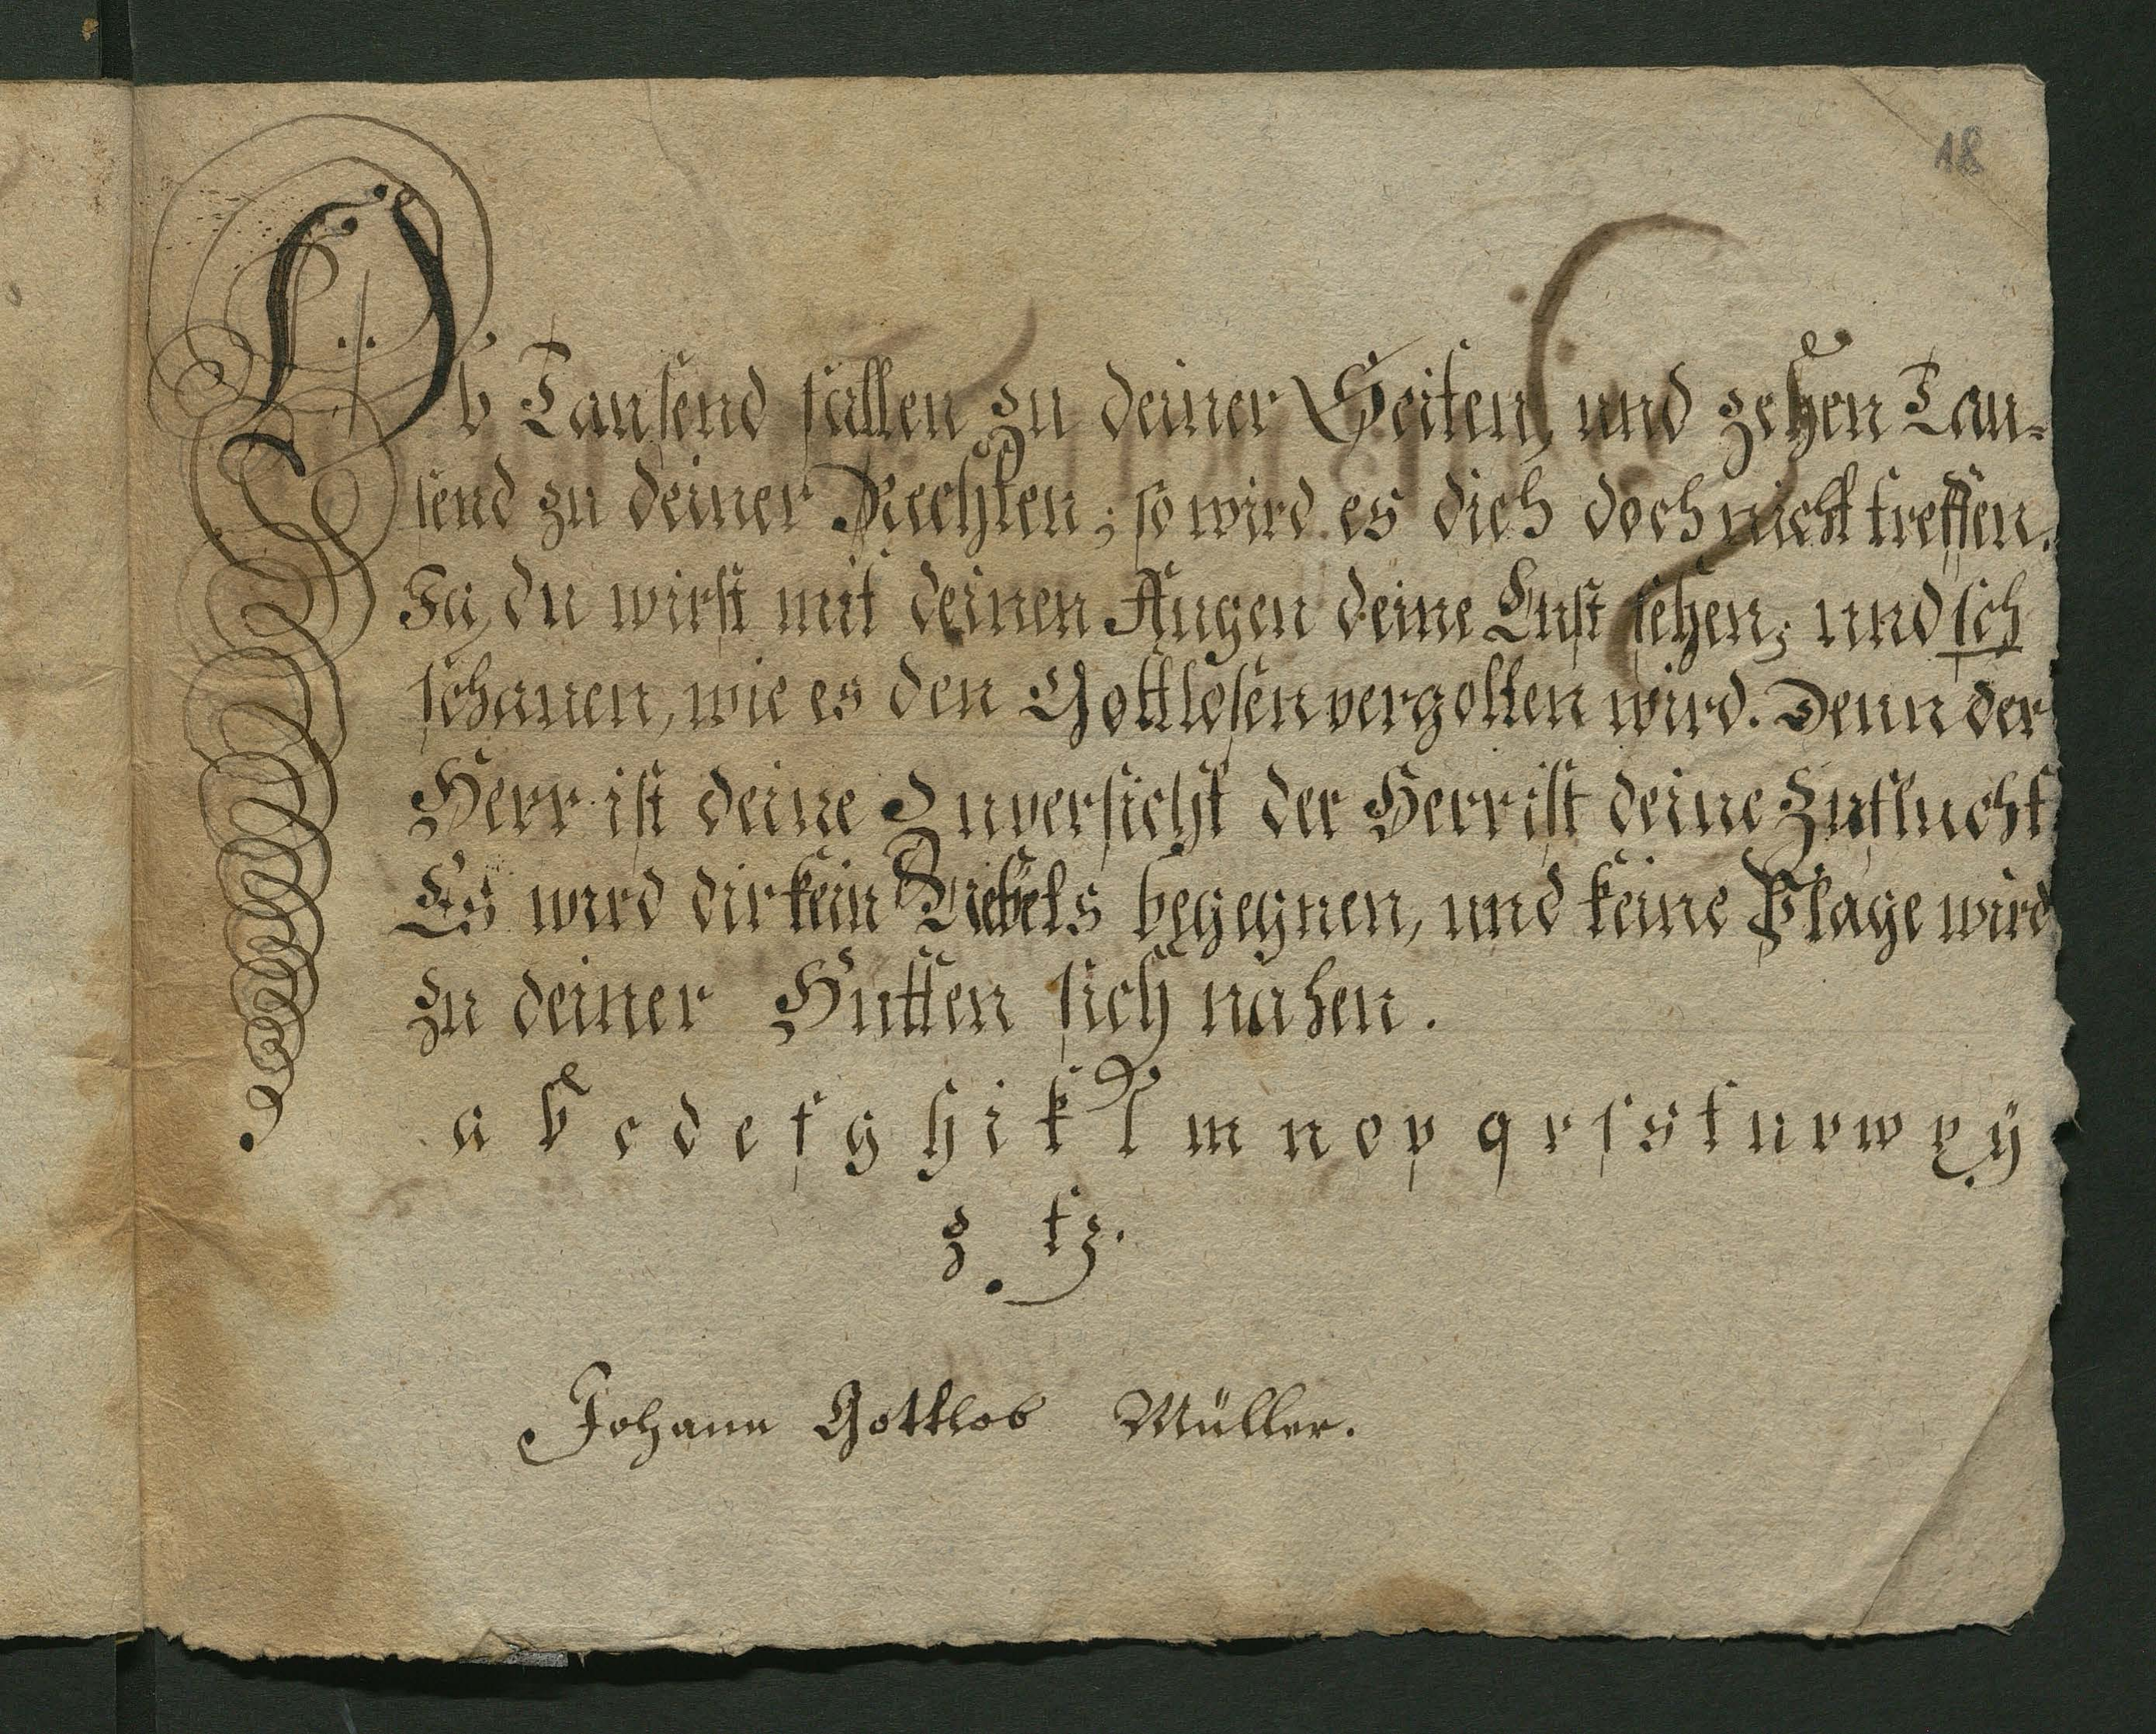 18
Ob Tausend fallen zu deiner Seiten, und zehen Tau-
send zu deiner Rechten; so wird es dich doch nicht treffen.
Ja, du wirst mit deinen Augen deine Lust sehen; und sch
schauen, wie es den Gottlosen vergolten wird. Denn der
Herr ist deine Zuversicht der Herr ist deine Zuflucht
Es wird dir kein Uebels begegnen, und keine Plage wird
zu deiner Hutten sich nahen.
a b c d e f g h i k l m n o p q r ſ s t u v w x y
z tz.
Johann Gottlob Müller.